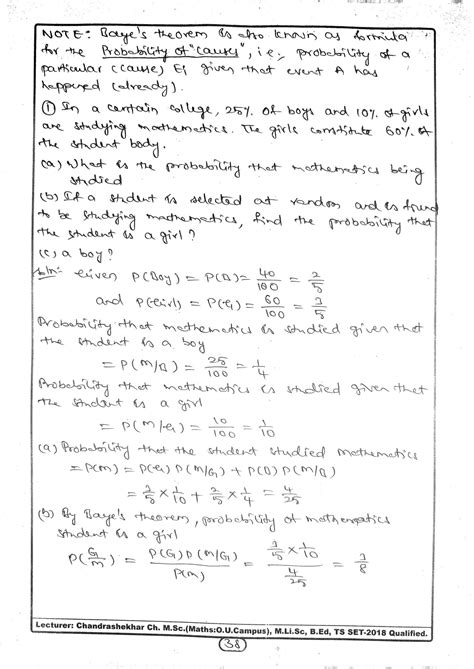 NOTE: Baye's theorem is also known as formula
for the Probability of "causes", i.e., probability of a
particular (cause) Ei given that event A has
happened (already).
① In a certain college, 25% of boys and 10% of girls
are studying mathematics. The girls constitute 60% of
the student body.
(a) What is the probability that mathematics being
studied
(b) If a student is selected at random and is found
to be studying mathematics, find the probability that
the student is a girl?
(c) a boy?
Soln:- Given P(Boy) = P(B) = 40/100 = 2/5
and P(Girl) = P(G) = 60/100 = 3/5
Probability that mathematics is studied given that
the student is a boy
= P(M/B) = 25/100 = 1/4
Probability that mathematics is studied given that
the student is a girl
= P(M/G) = 10/100 = 1/10
(a) Probability that the student studied mathematics
= P(M) = P(G) P(M/G) + P(B) P(M/B)
= 3/5 × 1/10 + 2/5 × 1/4 = 4/25
(b) By Baye's theorem, probability of mathematics
student is a girl
P(G/M) = P(G) P(M/G) / P(M) = 3/5 × 1/10 / 4/25 = 3/8
Lecturer: Chandrashekhar Ch. M.Sc.(Maths:O.U.Campus), M.Li.Sc, B.Ed, TS SET-2018 Qualified.
38